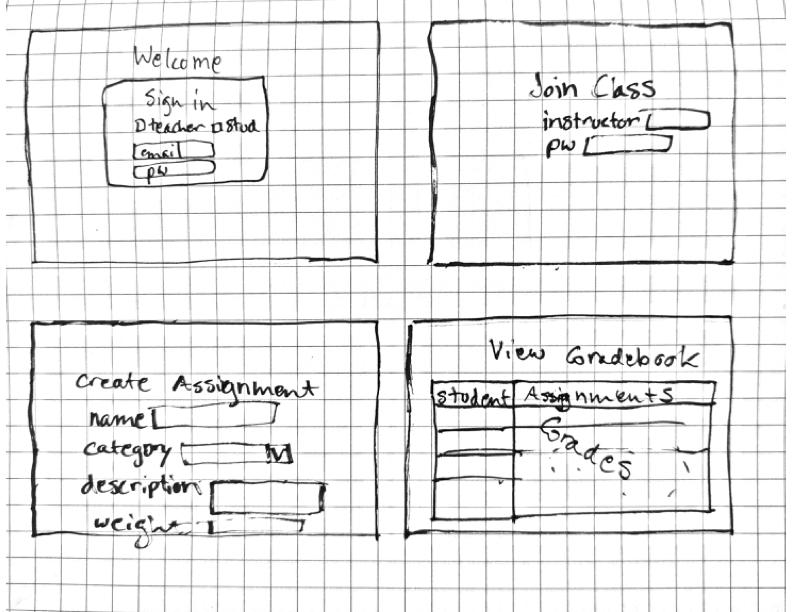 Welcome
Sign in
teacher stud
email
pw
Join Class
instructor
pw
Create Assignment
name
category
description
weight
View Gradebook
student Assignments
Grades